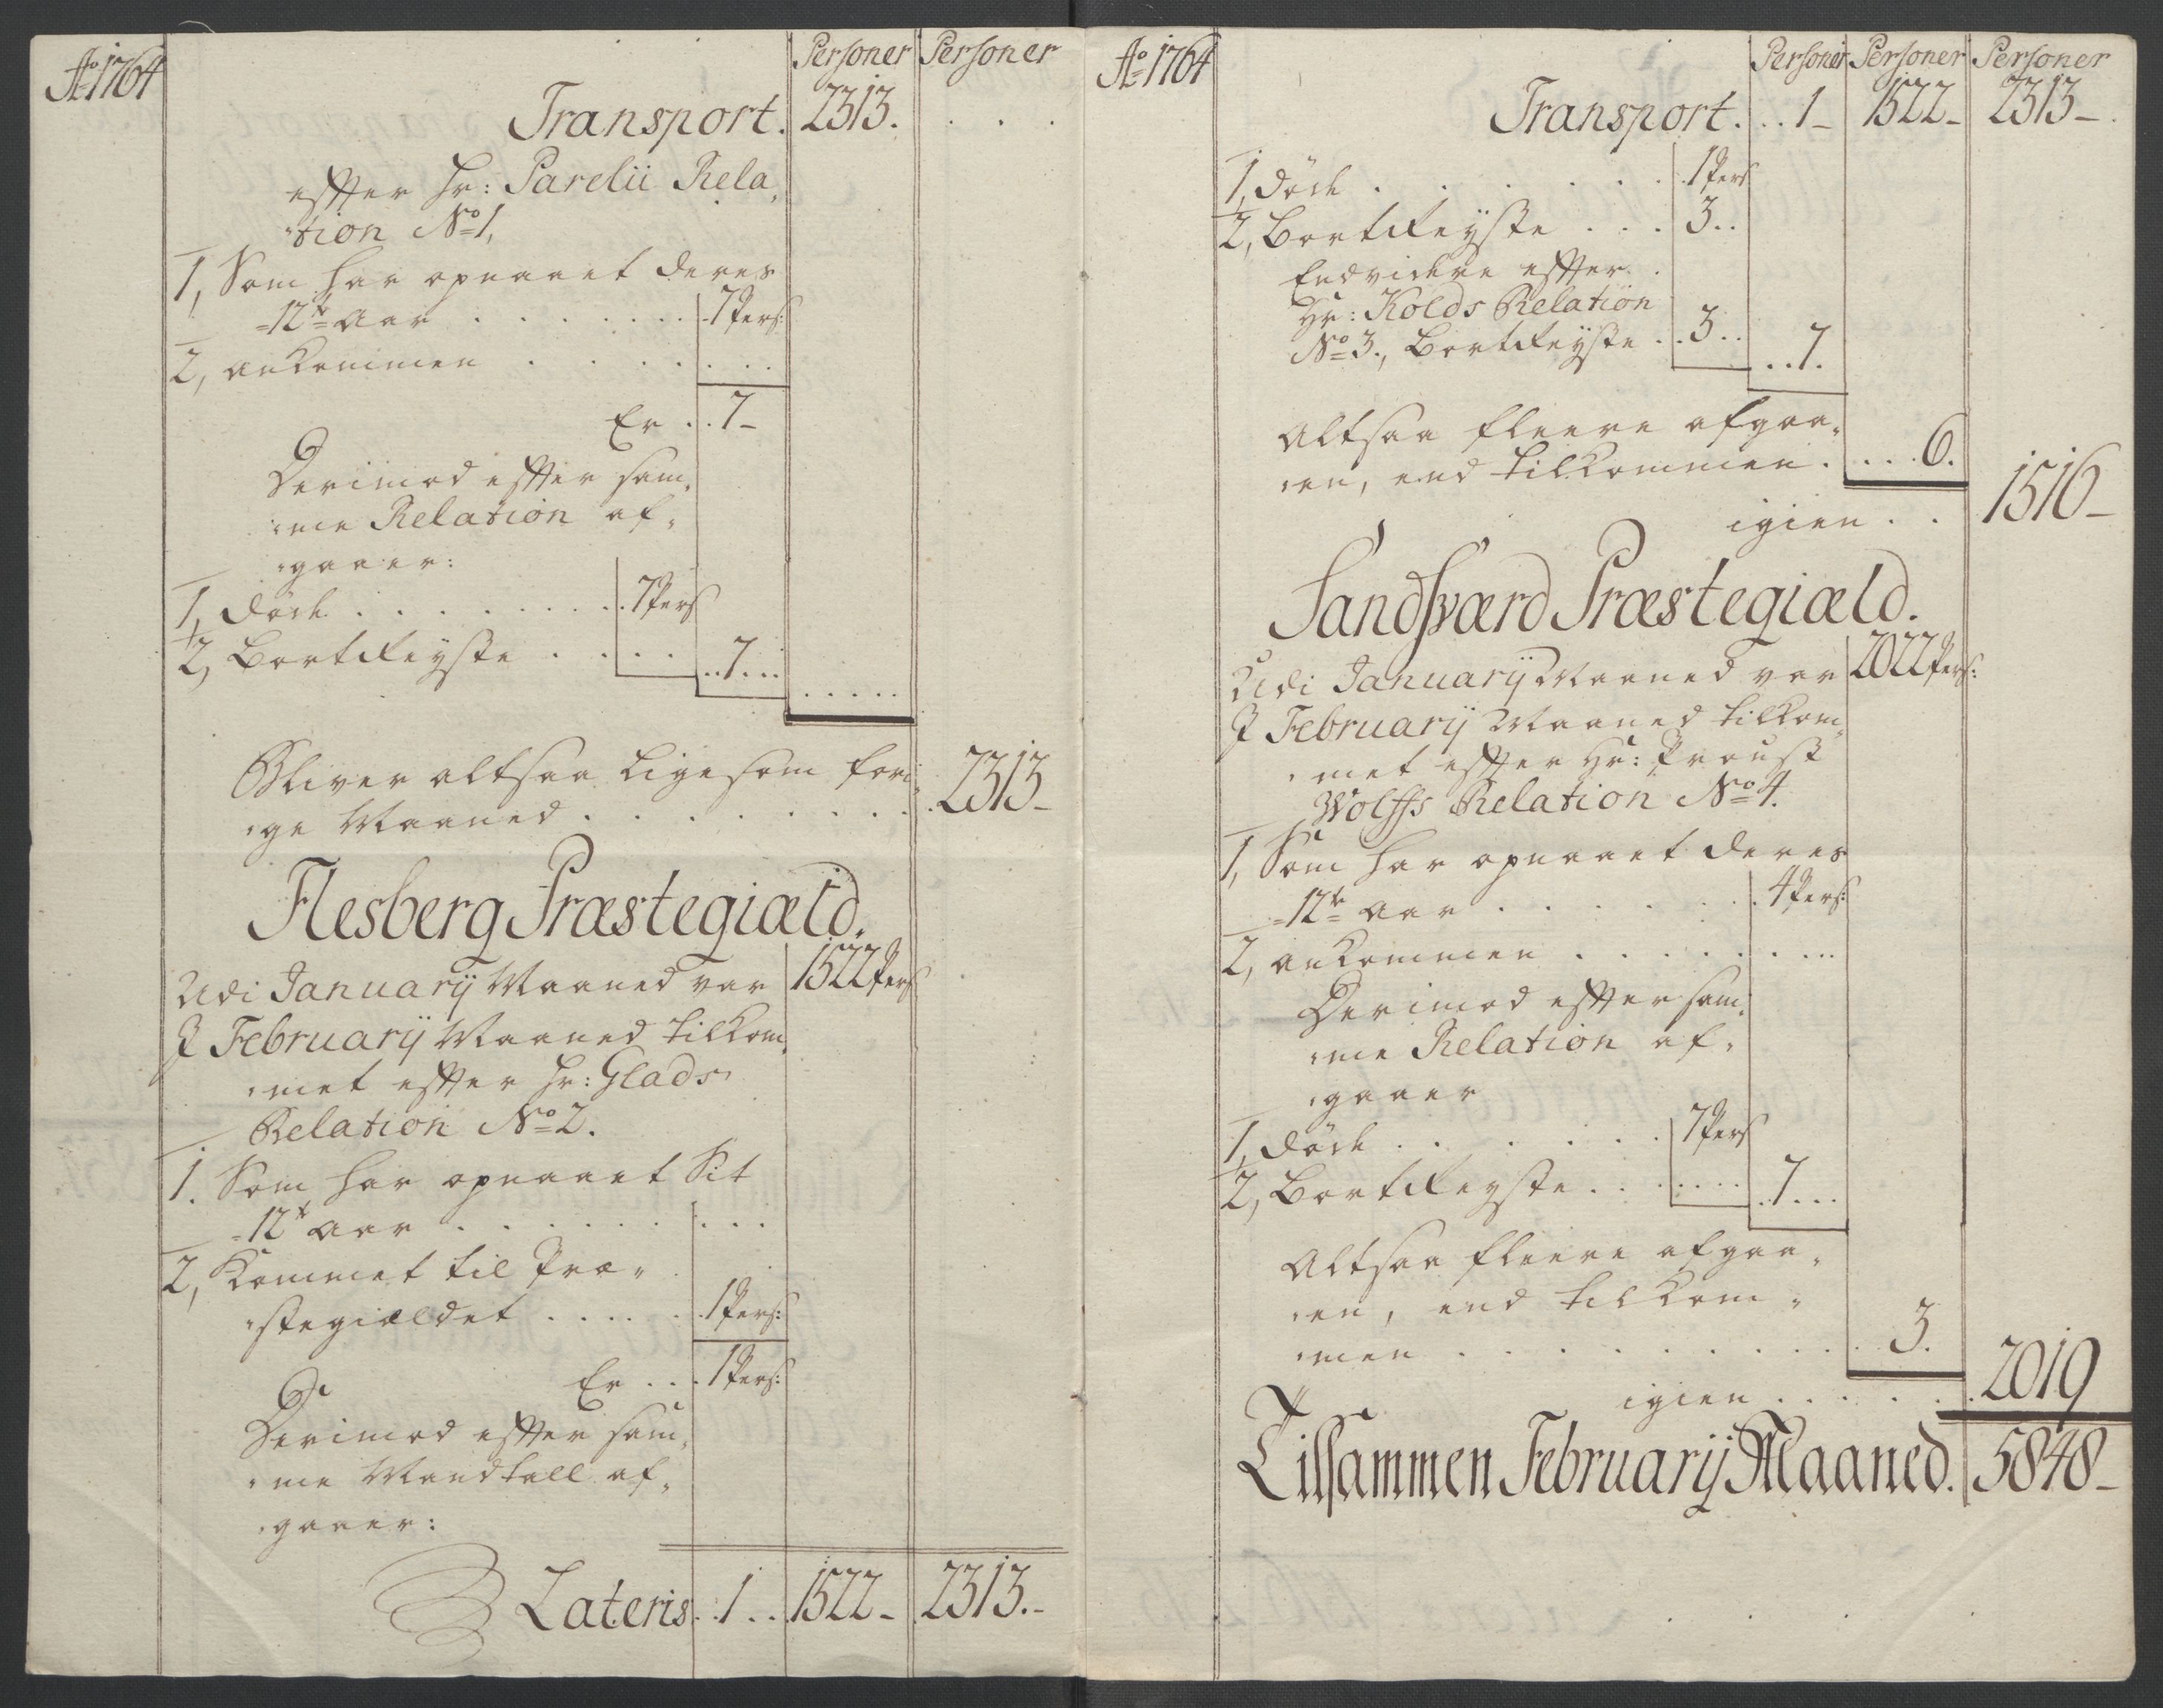 Ao 1764
Personer Personer
Transport. 2313. . . .
efter Hr: Parelii Rela„
„tion No 1,
1, Som har opnaaet deres
„12te Aar . . . . . . . 7 Pers:
2, ankommen . . . . . . .
Er . . 7 –
Derimod efter sam„
„me Relation af„
„gaaer:
1, Døde . . . . . . . . 7 Pers
2, Bortreyste . . . . . . 7 . . . . . . . .
Bliver altsaa ligesom fori„
„ge Maaned . . . . . . . . . 2313 –
Flesberg Præstegiæld.
Udi Januarij Maaned var 1522 Pers
I Februarij Maaned tilkom„
„met efter Hr: Glads
Relation No 2.
1. Som har opnaaet Sit
„12te Aar . . . . . . . . .
2, Kommet til Præ„
„stegiældet . . . . . 1 Pers:
Er . . . 1 Pers:
Derimod efter sam„
„me Mandtall af„
„gaaer:
Lateris . . 1 . . 1522 – 2313. –
Ao 1764
Personer Personer Personer
Transport . . . 1 – 1522 – 2313 –
1, Døde . . . . . . . 1 Pers
2, Bortreyste . . . 3 . .
Endvidere efter
Hr: Kolds Relation
No 3., Bortreyste . . 3 . . . . 7.
Altsaa fleere afgaa„
„en, end tilkommen . . . . 6.
igien . . 1516 –
Sandsværd Præstegiæld.
Udi Januarij Maaned var 2022 Pers:
I Februarij Maaned tilkom„
„met efter Hr: Proust
Wolffs Relation No 4.
1, Som har opnaaet deres
„12te Aar . . . . . . . 4 Pers:
2, ankommen . . . . . . . .
Derimod efter sam„
„me Relation af„
„gaaer
1, Døde . . . . . . . 7 Pers
2, Bortreyste . . . . . . . 7 . . .
Altsaa fleere afgaa„
„en, end tilkom„
„men . . . . . . . . . . 3.
igien . . . . . 2019
Tilsammen Februarij Maaned. 5848 –